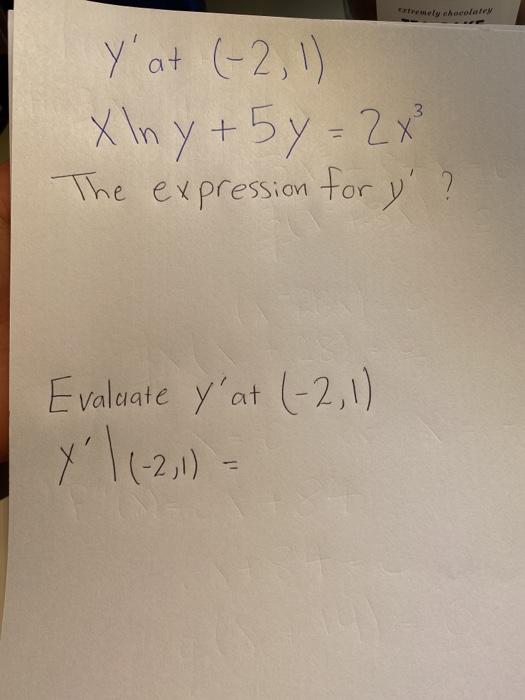 extremely chocolatey
y' at (-2, 1)
x ln y + 5y = 2x³
The expression for y' ?
Evaluate y' at (-2,1)
y'|(-2,1) =